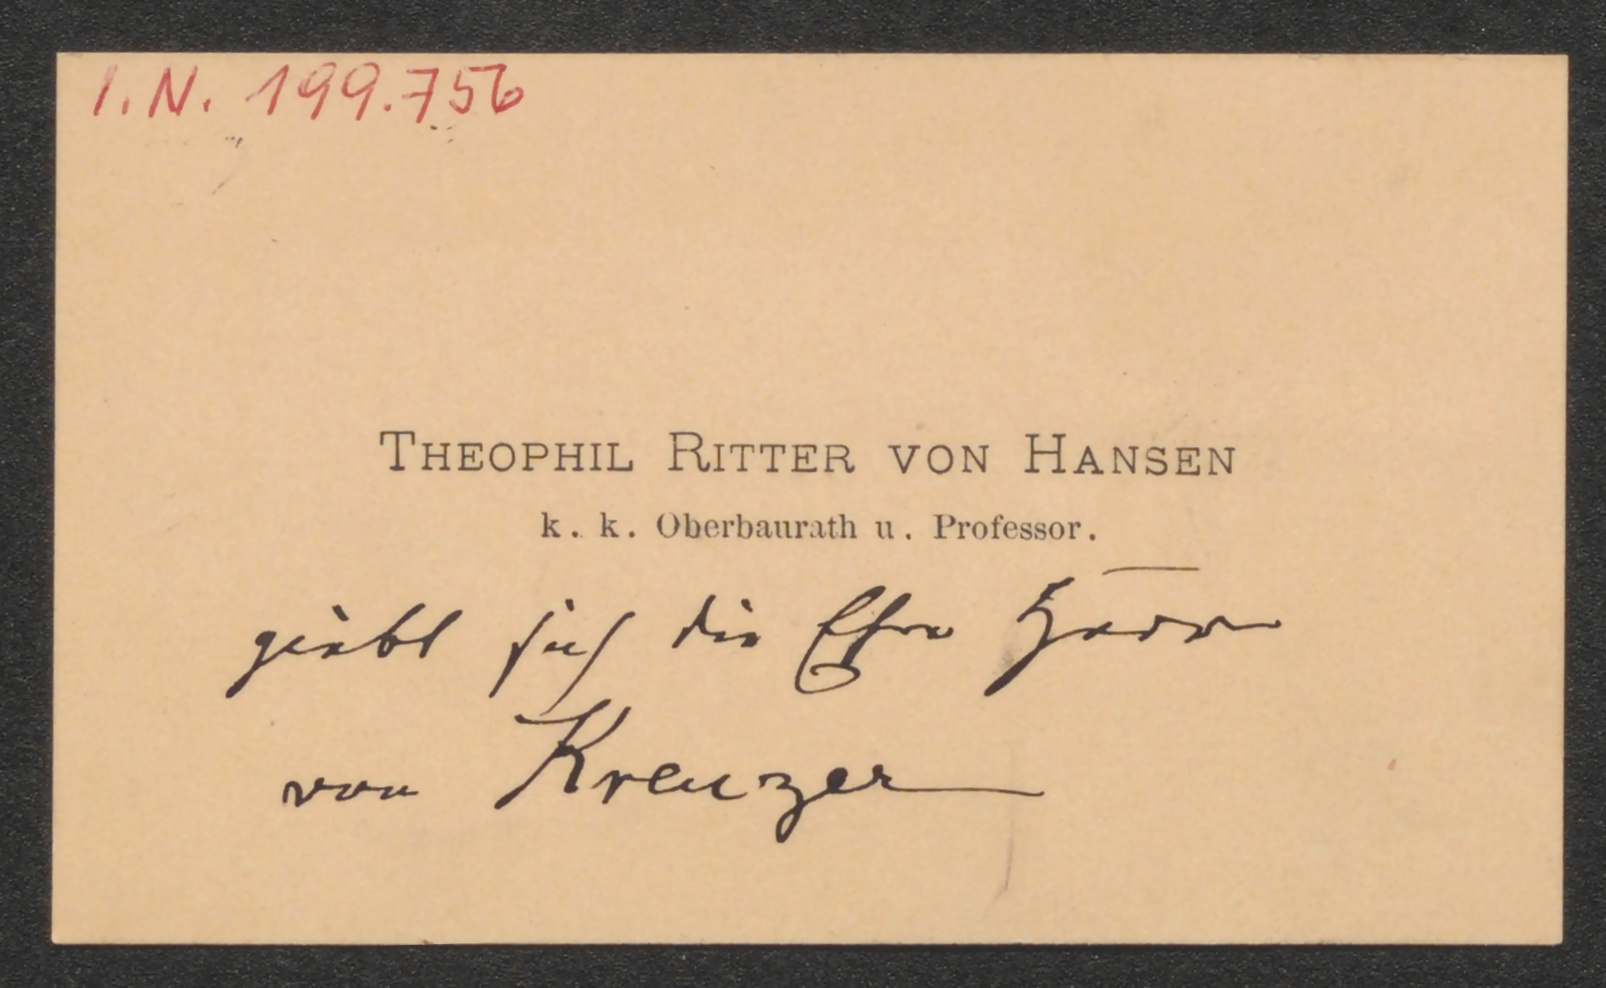 I.N. 199.756
THEOPHIL RITTER VON HANSEN
k. k. Oberbaurath u. Professor.
giebt sich die Ehre Herrn
von Kreuzer